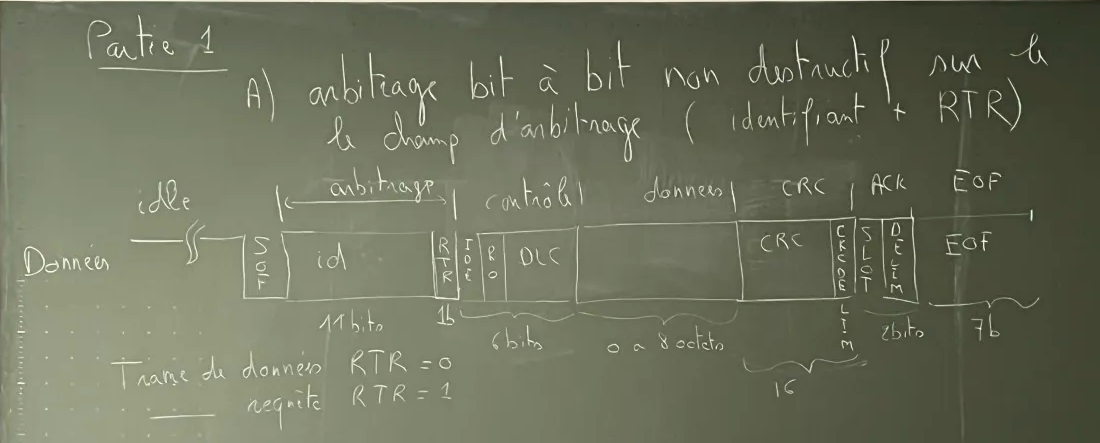 Partie 1
A) arbitrage bit à bit non destructif sur le
le champ d'arbitrage ( identifiant + RTR)
idle arbitrage contrôle données CRC ACK EOF
Données SOF id RTR IDE R0 DLC CRC CRCDELIM SLOT DELIM EOF
11 bits 1b 6 bits 0 a 8 octets 16 2 bits 7b
Trame de données RTR = 0
requête RTR = 1